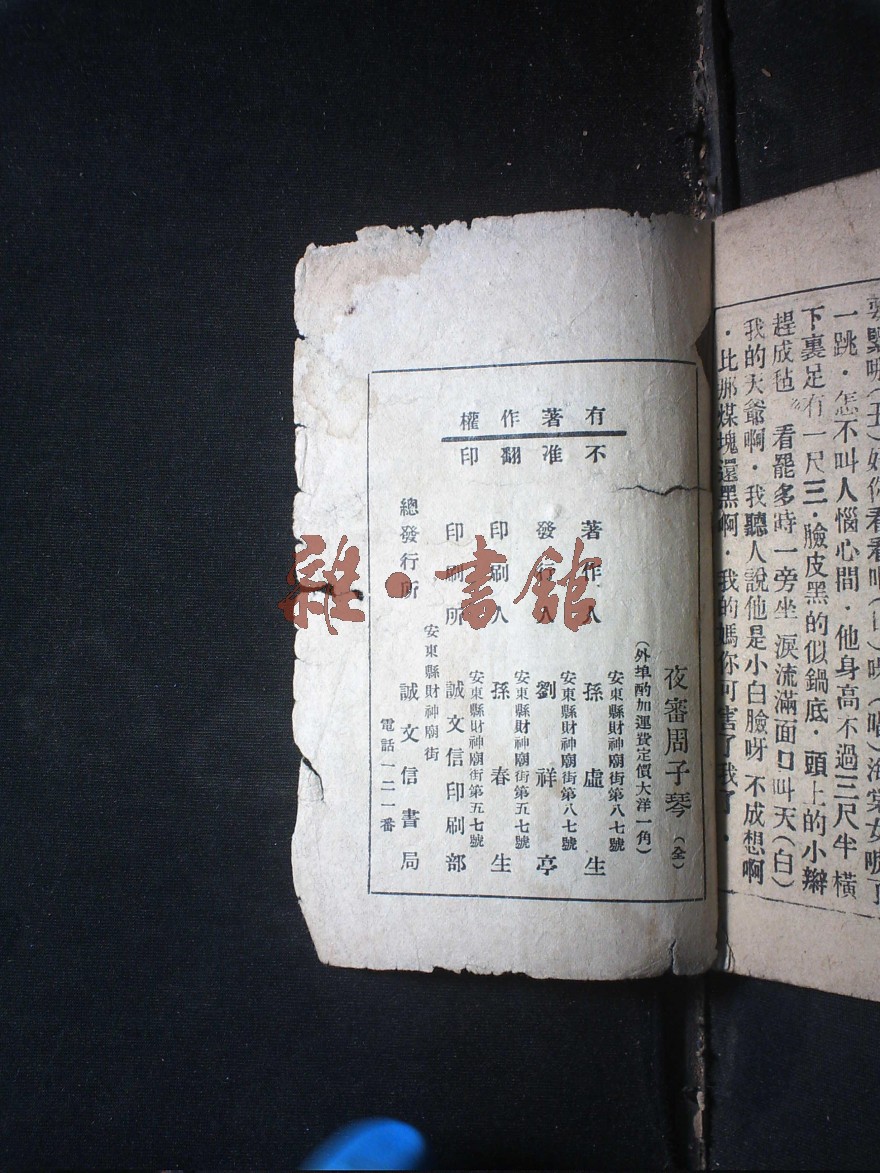 要緊呀(丑)好你看看吧(旦)咳(唱)海棠女唳了
一跳·怎不叫人惱心間·他身高不過三尺半橫
下裏足有一尺三·臉皮黑的似鍋底·頭上的小辮
趕成毡 看罷多時一旁坐 淚流滿面口叫天(白)
我的天爺啊·我聽人說他是小白臉呀 不成想啊
·比那煤塊還黑啊·我的媽你可害了我了·
有著作權
不准翻印
夜審周子琴(全)
(外埠酌加運費定價大洋一角)
安東縣財神廟街第八七號
著作人 孫虛生
安東縣財神廟街第八七號
發行人 劉祥亭
安東縣財神廟街第五七號
印刷人 孫春生
安東縣財神廟街第五七號
印刷所 誠文信印刷部
安東縣財神廟街
總發行所 誠文信書局
電話一二一番
雜·書館